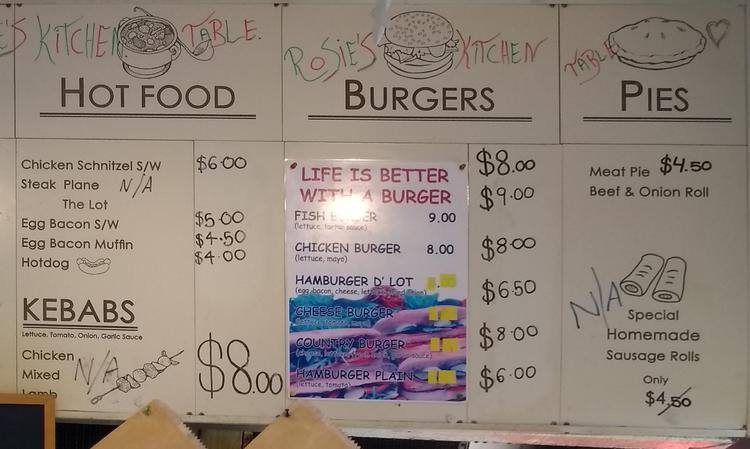 E'S KITCHEN TABLE.
HOT FOOD
Chicken Schnitzel S/W $6.00
Steak Plane N/A
The Lot
Egg Bacon S/W $5.00
Egg Bacon Muffin $4.50
Hotdog $4.00
KEBABS
Lettuce, Tomato, Onion, Garlic Sauce
Chicken
Mixed N/A $8.00
Lamb
ROSIE'S KITCHEN
BURGERS
LIFE IS BETTER
WITH A BURGER
FISH BURGER 9.00
(lettuce, tartar sauce)
CHICKEN BURGER 8.00
(lettuce, mayo)
HAMBURGER D' LOT
(egg, bacon, cheese,
CHEESE BURGER
(lettuce, tomato, mayo)
COUNTRY BURGER
HAMBURGER PLAIN
(lettuce, tomato)
$8.00
$9.00
$8.00
$6.50
$8.00
$6.00
TABLE
PIES
Meat Pie $4.50
Beef & Onion Roll
N/A
Special
Homemade
Sausage Rolls
Only
$4.50